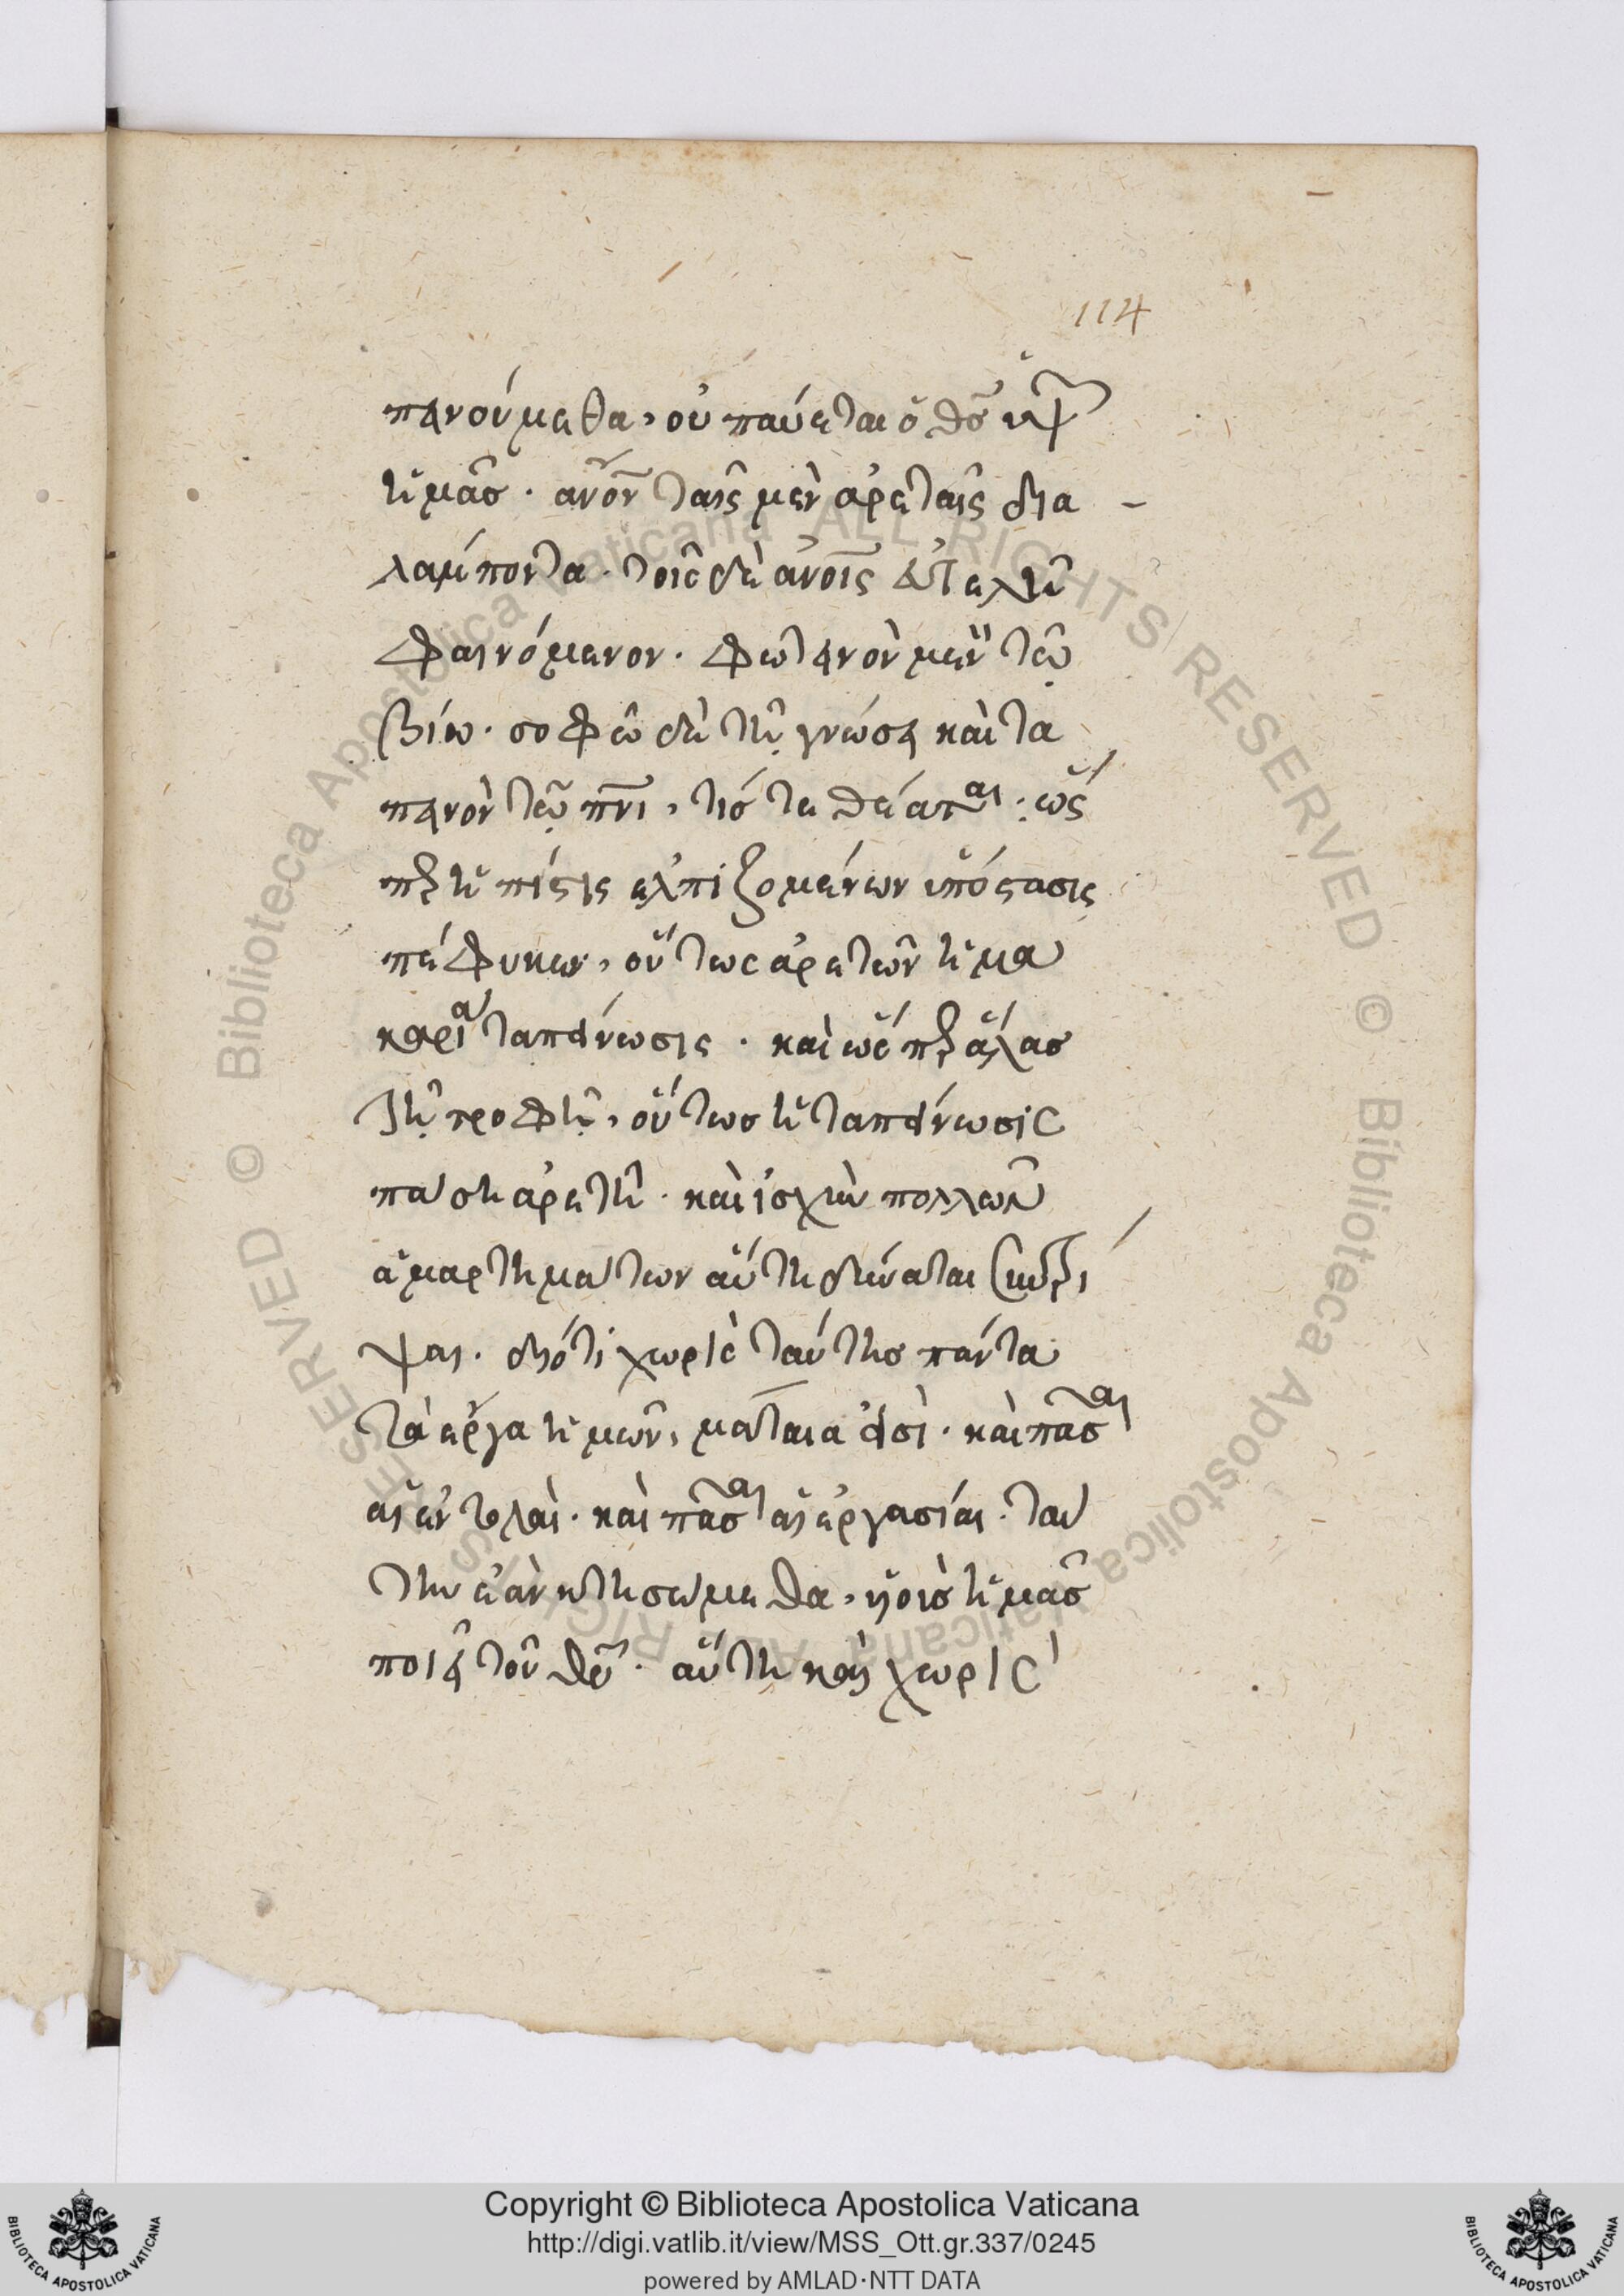 114
πεινούμεθα, οὐ παύεται ὁ θς̄ ὑψῶν
ἡμᾶς. ἀνον̄ ταῖς μὲν ἀρεταῖς δια-
λάμποντα. τοῖς δὲ ἀνοις̄ εὐτελῆ
φαινόμενον. φωτεινὸν μὲν τῷ
βίω. σοφῶ δὲ τῇ γνώσει καὶ τα
πεινὸν τῷ πνι̅, τίς τεθέαται; ὥς
περ ἡ πίστις ἐλπιζομένων ὑπόστασις
πέφυκεν, οὕτως ἀρετῶν ἡ μα
καρία ταπείνωσις. καὶ ὥσπερ ἅλας
τῇ τροφῇ, οὕτως ἡ ταπείνωσις
πάσῃ ἀρετῇ. καὶ ἰσχὺν πολλῶν
ἁμαρτημάτων αὕτη δύναται συντρί
ψαι. διότι χωρὶς ταύτης πάντα
τὰ ἔργα ἡμῶν, μάταια εἰσὶ. καὶ πᾶσαι
αἱ ἐντολαὶ. καὶ πᾶσαι αἱ ἐργασίαι. ταύ
την ἐὰν κτησώμεθα, υἱοὺς ἡμᾶς
ποιεῖ τοῦ θυ̅. αὕτη καὶ χωρὶς
Copyright © Biblioteca Apostolica Vaticana
http://digi.vatlib.it/view/MSS_Ott.gr.337/0245
powered by AMLAD·NTT DATA
BIBLIOTECA APOSTOLICA VATICANA
BIBLIOTECA APOSTOLICA VATICANA
© Biblioteca Apostolica Vaticana ALL RIGHTS RESERVED © Biblioteca Apostolica Vaticana ALL RIGHTS RESERVED